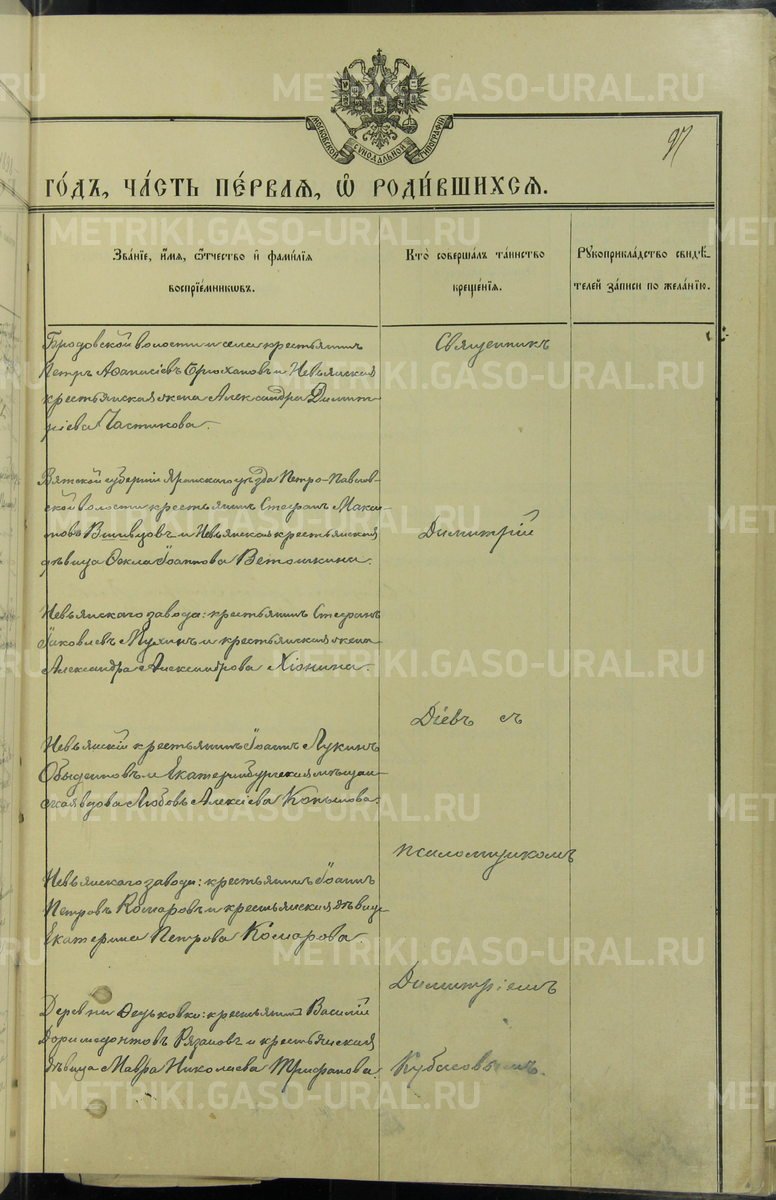 МОСКОВСКОЙ СѴНОДАЛЬНОЙ ТИПОГРАФІИ
97
ГО́ДЪ, ЧА́СТЬ ПЕ́РВАѦ, Ѽ РОДИ́ВШИХСѦ.
Зва́нїе, и҆́мѧ, ѻ҆́тчество и҆ фами́лїѧ
воспрїе́мниковъ.
Кто̀ соверша́лъ та́инство
креще́нїѧ.
Рꙋкоприкла́дство свидѣ́-
телей за́писи по жела́нїю.
Бродовской волости и села крестьянинъ
Петръ Аѳанасіевъ Брюхановъ и Невьянская
крестьянская жена Александра Димит-
ріева Частикова.
Вятской губерніи Яранскаго уѣзда Петро-Павлов-
ской волости крестьянинъ Стефанъ Макси-
мовъ Вшивцовъ и Невьянская крестьянская
дѣвица Ѳекла Іоаннова Ветошкина.
Невьянскаго завода: крестьянинъ Стефанъ
Іаковлевъ Мухинъ и крестьянская жена
Александра Александрова Хіонина.
Невьянскій крестьянинъ Іоаннъ Лукинъ
Обыденновъ и Екатеринбургская мѣщан-
ская вдова Любовь Алексіева Копылова.
Невьянскаго завода: крестьянинъ Іоаннъ
Петровъ Комаровъ и крестьянская дѣвица
Екатерина Петрова Комарова.
Деревни Ѳедьковки: крестьянинъ Василій
Доримедонтовъ Рязановъ и крестьянская
дѣвица Мавра Николаева Трифанова.
Священникъ
Димитрій
Діевъ съ
псаломщикомъ
Димитріемъ
Кубасовымъ.
METRIKI.GASO-URAL.RU